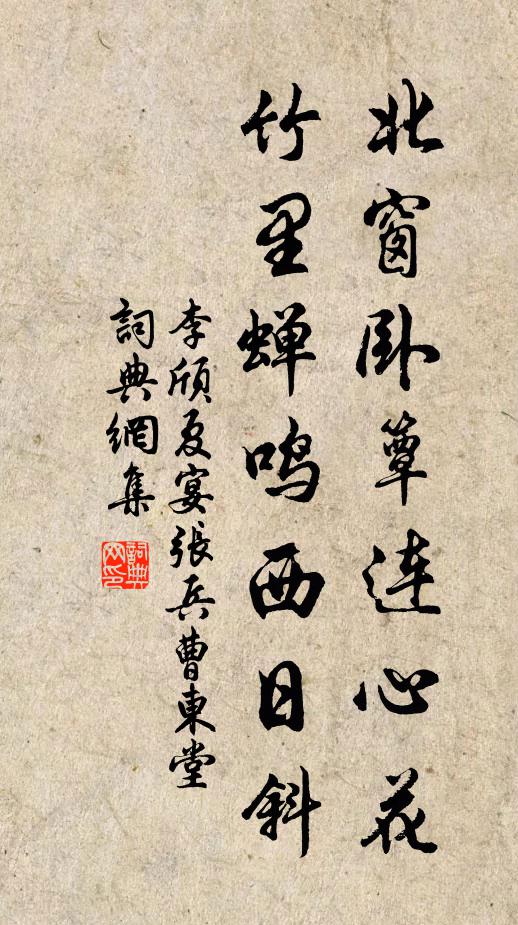 北窗卧簟连心花
竹里蝉鸣西日斜
李頎夏宴張兵曹東堂
詞典網集
詞典網印